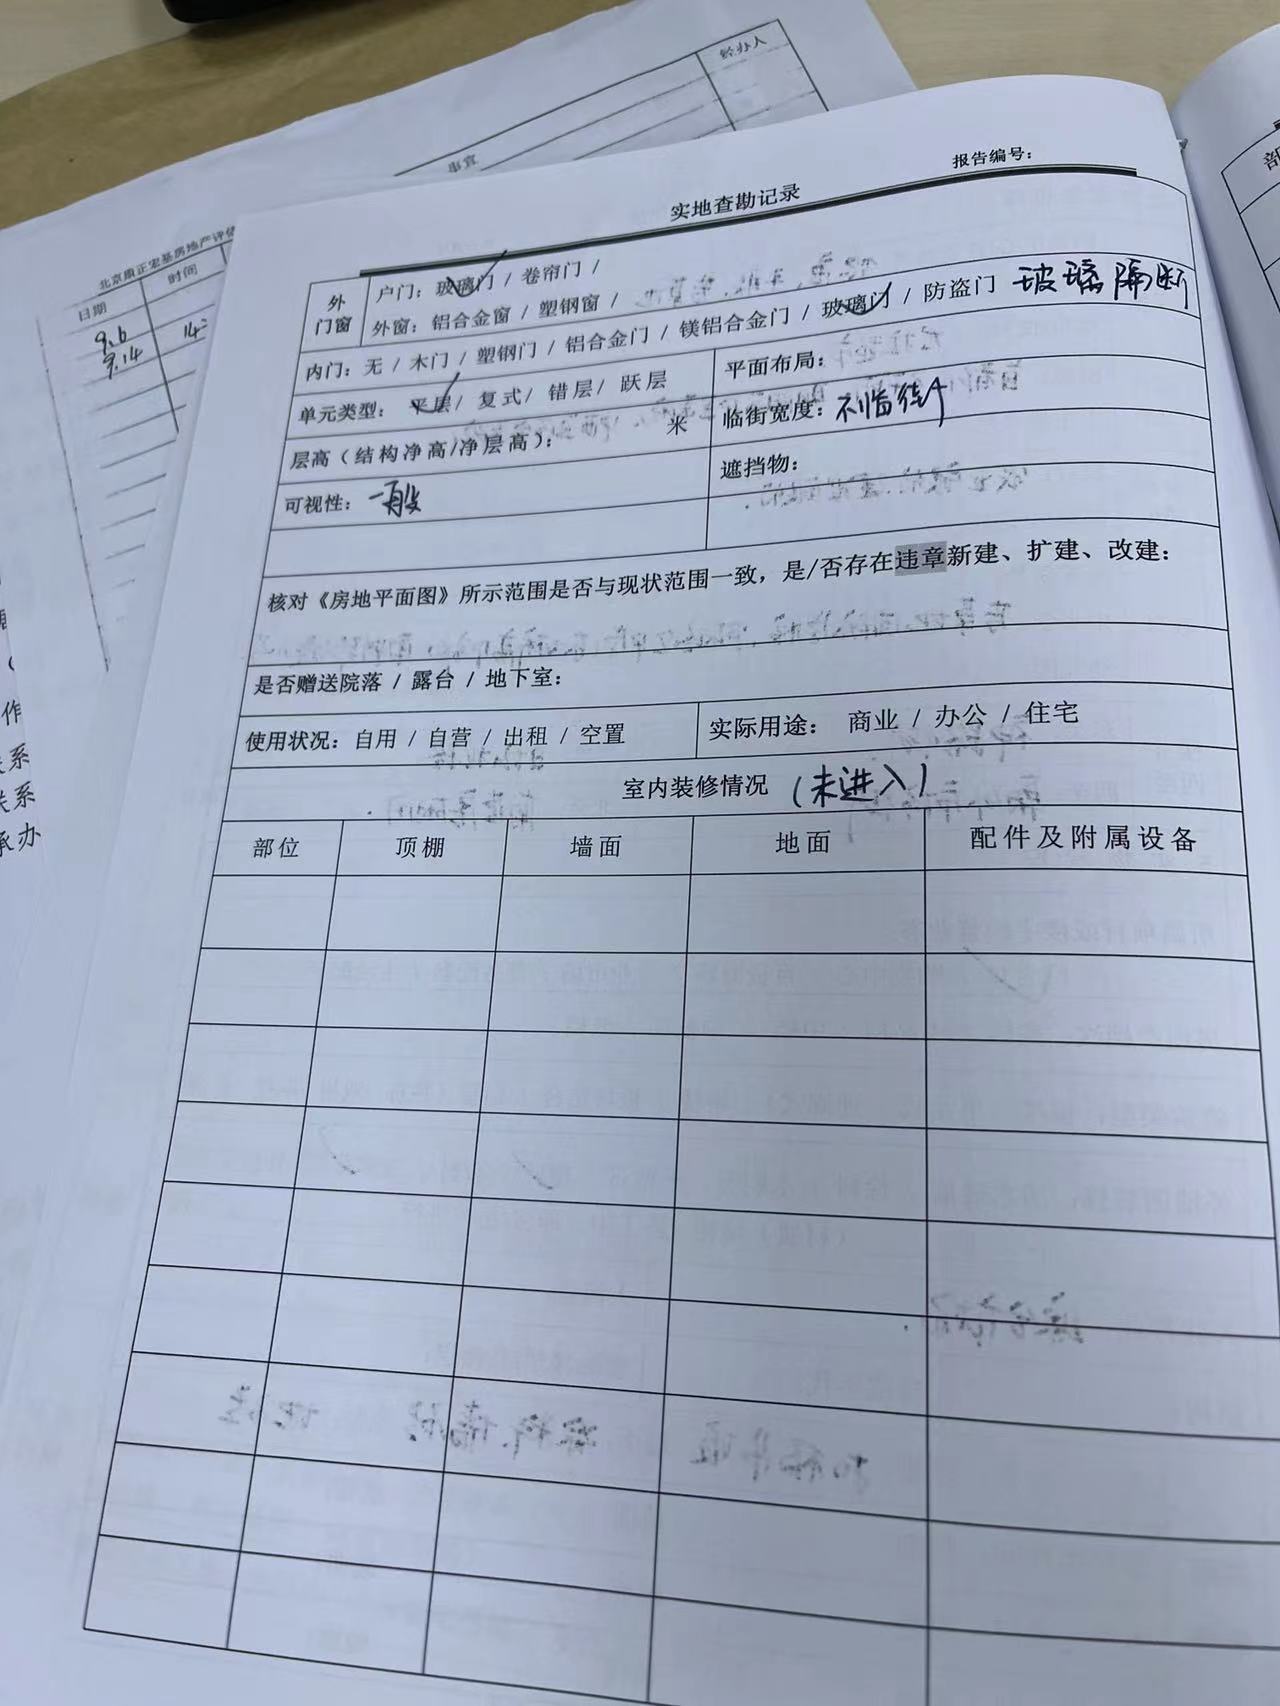 经办人
事宜
北京康正宏基房地产评估
日期 时间
9.6
9.14 14:
作
系
关系
承办
报告编号：
实地查勘记录
外门窗
户门：玻璃门 / 卷帘门 /
外窗：铝合金窗 / 塑钢窗 /
内门：无 / 木门 / 塑钢门 / 铝合金门 / 镁铝合金门 / 玻璃门 / 防盗门 玻璃隔断
单元类型： 平层 / 复式 / 错层 / 跃层
平面布局：
层高（结构净高/净层高）： 米
临街宽度：不临街
可视性：一般
遮挡物：
核对《房地平面图》所示范围是否与现状范围一致，是/否存在违章新建、扩建、改建：
是否赠送院落 / 露台 / 地下室：
使用状况：自用 / 自营 / 出租 / 空置
实际用途： 商业 / 办公 / 住宅
室内装修情况 （未进入）
部位 顶棚 墙面 地面 配件及附属设备
部